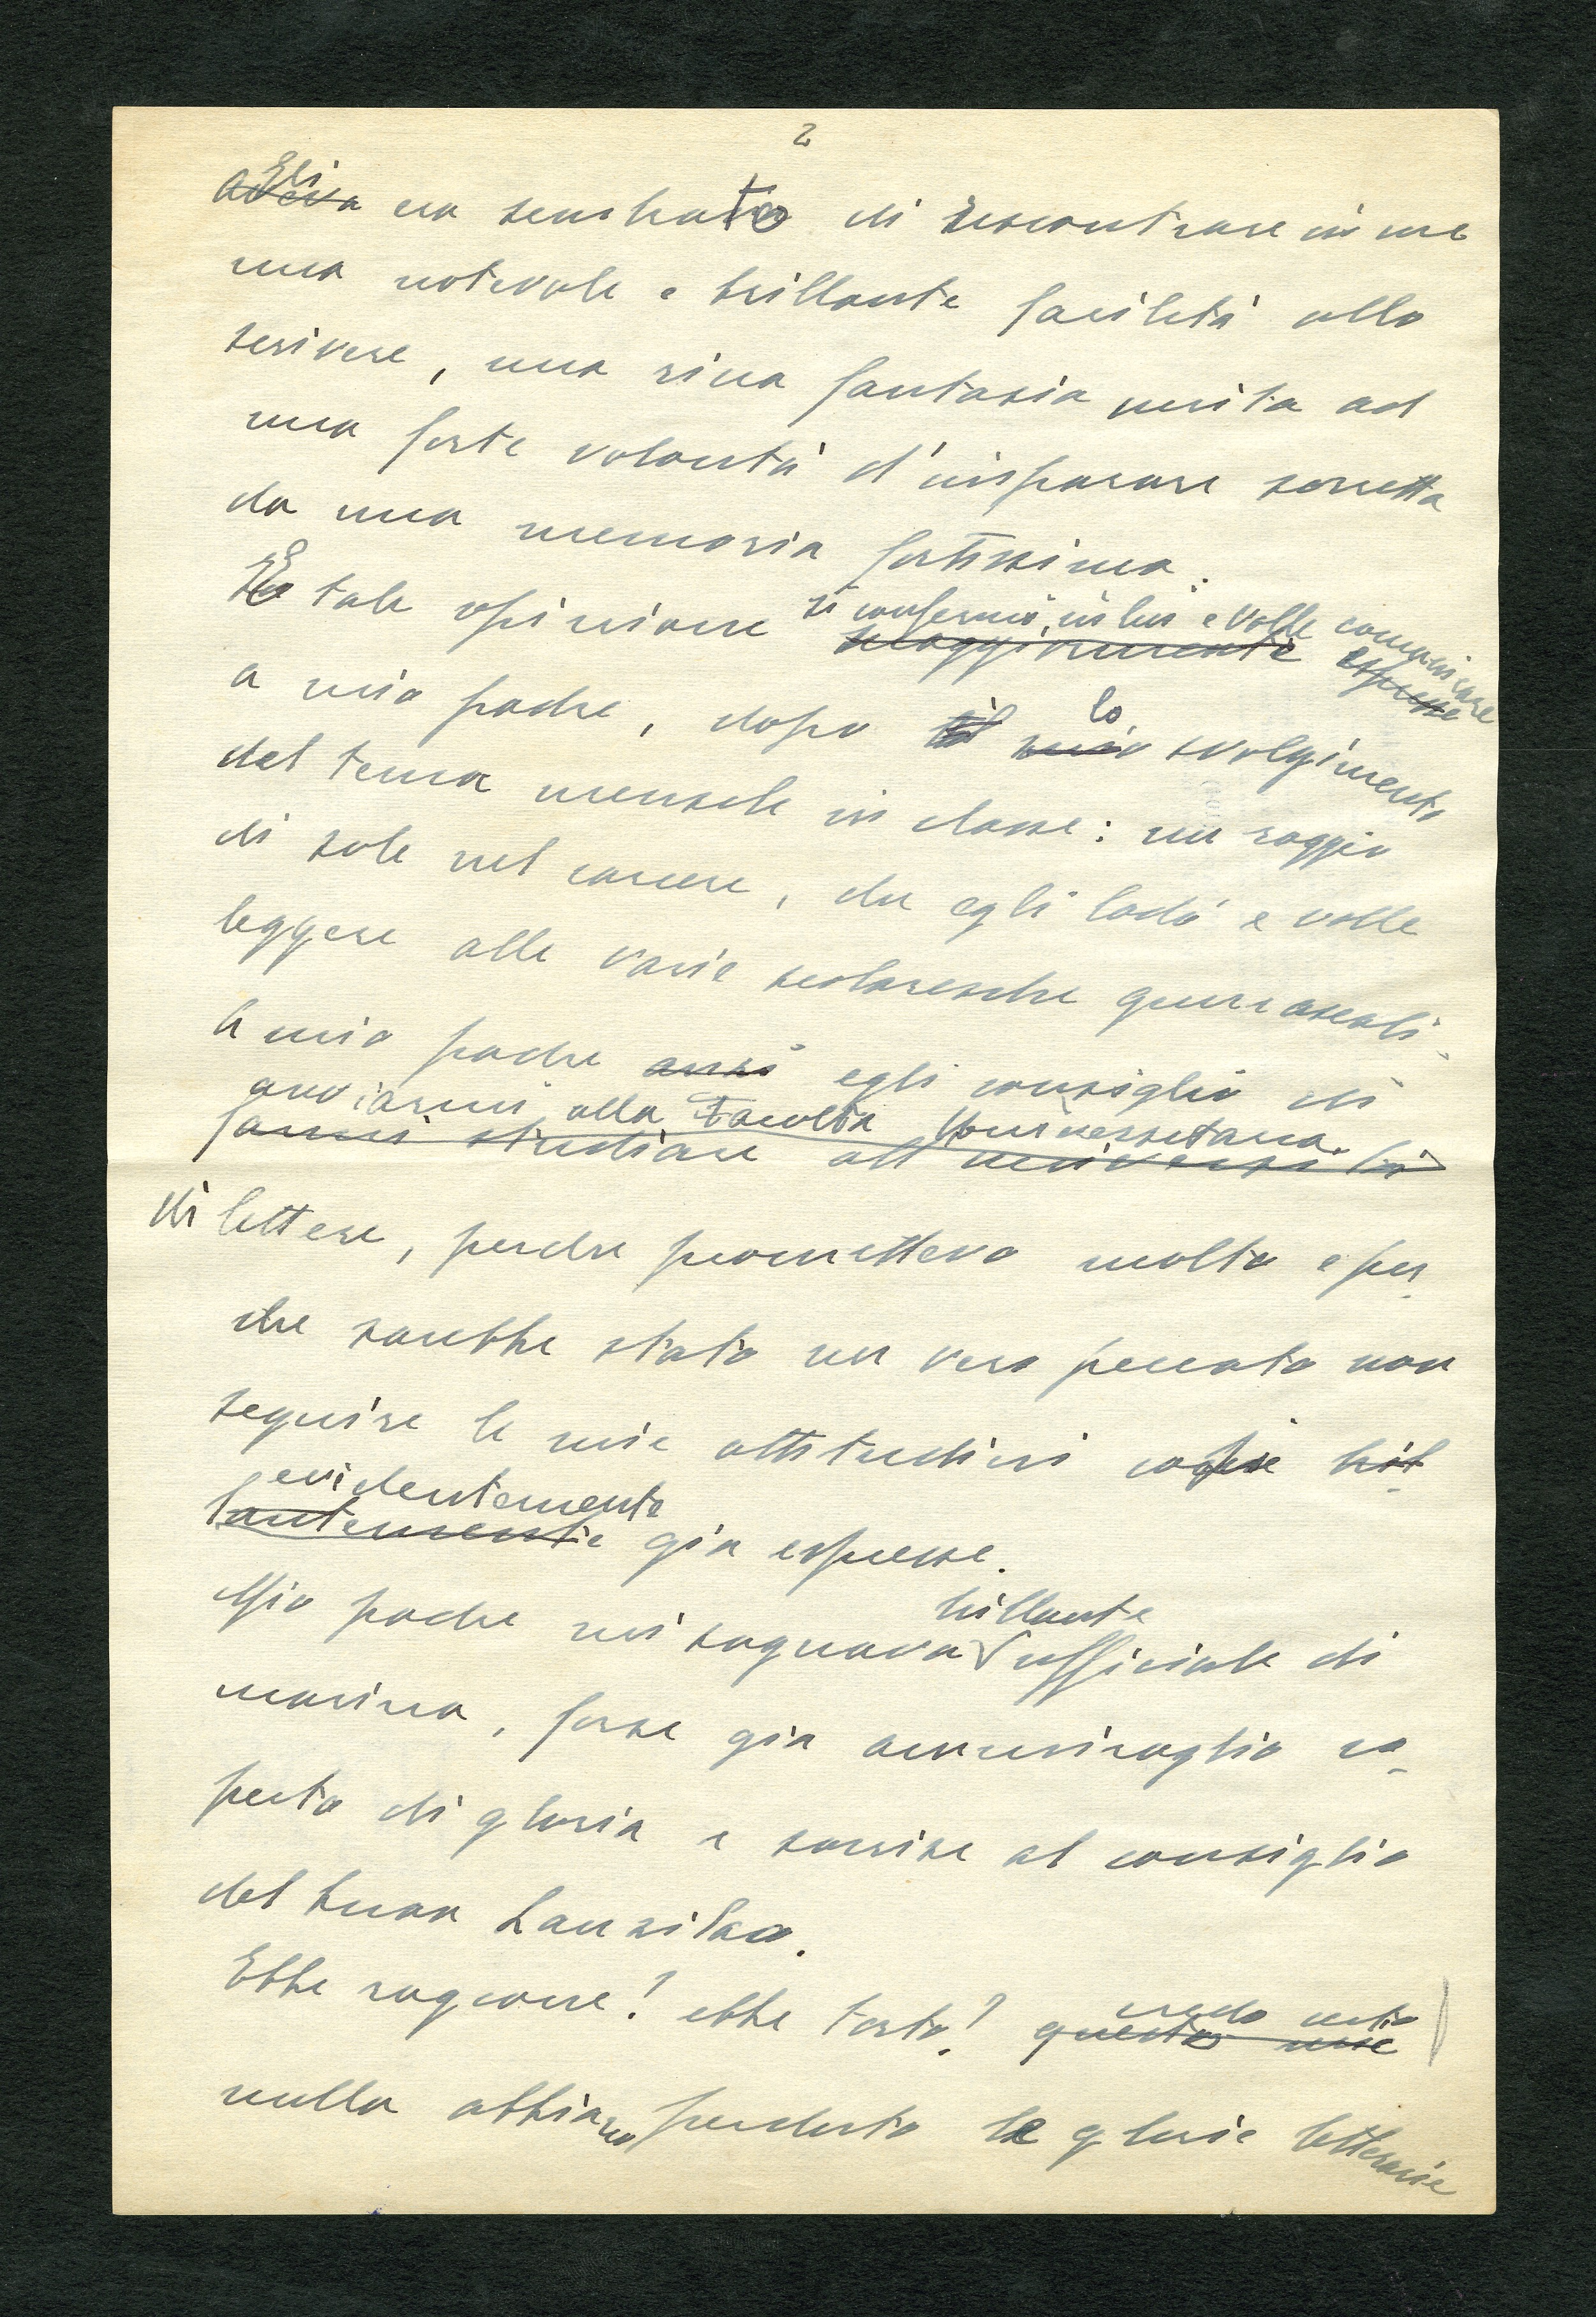 2
Gli
aveva era sembrato di riscontrare in me
una notevole e brillante facilità allo
scrivere, una viva fantasia unita ad
una forte volontà d'imparare sorretta
da una memoria fortissima.
E tale opinione si confermò in lui e volle comunicare
maggiormente espresse
a mio padre, dopo il mio lo svolgimento
del tema mensile in classe: un raggio
di sole nel carcere, che egli lodò e volle
leggere alle varie scolaresche ginnasiali.
A mio padre anzi egli consigliò di
avviarmi alla Facoltà Universitaria
farmi studiare all'università
di lettere, perche promettevo molto e per
che sarebbe stato un vero peccato non
seguire le mie attitudini così bril
evidentemente
lantemente già espresse.
Mio padre mi sognava brillante ufficiale di
marina, forse già ammiraglio co
perto di gloria e sorrise al consiglio
del buon Lanzilao.
Ebbe ragione! ebbe torto! credo certo
questo
nulla abbiano perduto le glorie letterarie